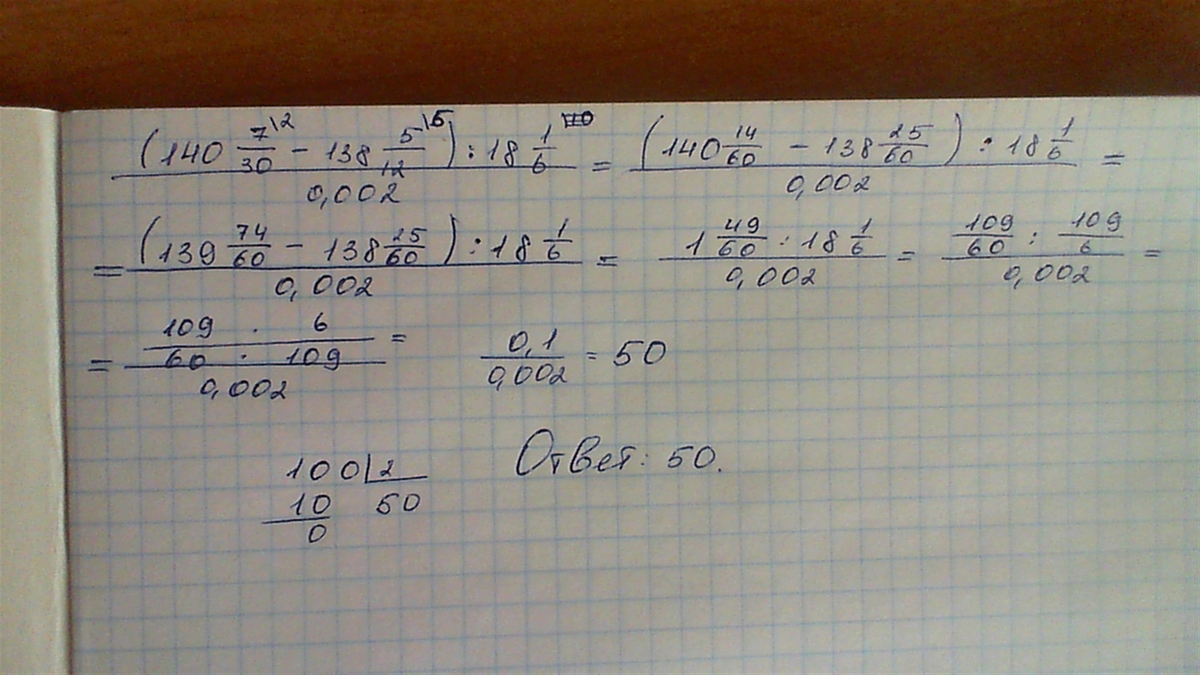 (140 7\2/30 − 138 5\5/12) : 18 1/6 / 0,002 = (140 14/60 − 138 25/60) : 18 1/6 / 0,002 =
= (139 74/60 − 138 25/60) : 18 1/6 / 0,002 = 1 49/60 : 18 1/6 / 0,002 = 109/60 : 109/6 / 0,002 =
= 109 · 6 / 60 · 109 / 0,002 = 0,1 / 0,002 = 50
100 2
10 50
0
Ответ: 50.